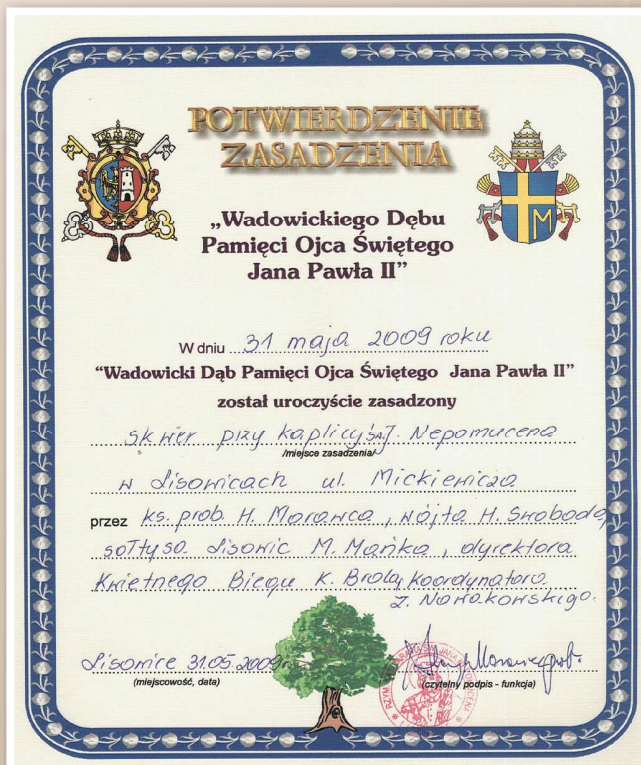 POTWIERDZENIE
ZASADZENIA
„Wadowickiego Dębu
Pamięci Ojca Świętego
Jana Pawła II”
W dniu 31 maja 2009 roku
“Wadowicki Dąb Pamięci Ojca Świętego Jana Pawła II”
został uroczyście zasadzony
skwer przy kaplicy św. J. Nepomucena
/miejsce zasadzenia/
w Lisowicach ul. Mickiewicza
przez ks. prob. H. Morawca, wójta H. Swobodę,
sołtysa Lisowic M. Mańka, dyrektora
Kwietnego Biegu K. Brolą, koordynatora
Z. Nowakowskiego.
Lisowice 31.05.2009r
(miejscowość, data)
(czytelny podpis - funkcja)
M